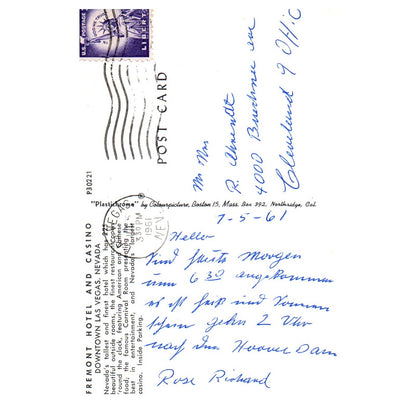 FREMONT HOTEL AND CASINO
DOWNTOWN LAS VEGAS, NEVADA
Nevada's tallest and finest hotel which has
beautiful outside rooms, the finest resort
'round the clock, featuring American and Chinese
foods; the famous Carnival Room presenting the
best in entertainment, and Nevada's largest
casino. Inside Parking.
P30221
"Plastichrome" ® by Colourpicture, Boston 15, Mass. Box 392, Northridge, Cal.
POST CARD
U.S. POSTAGE
LIBERTY
3¢
VEGAS
330PM
1961
NEV.
Mr Mrs
R. Ahrendt
4000 Buechner ave
Cleveland 9 Ohio
7-5-61
Hello
Sind heute Morgen
um 6 30 angekommen
es ist heiß und
gehn 2 Uhr
nach dem Hoover Dam
Rose Richard